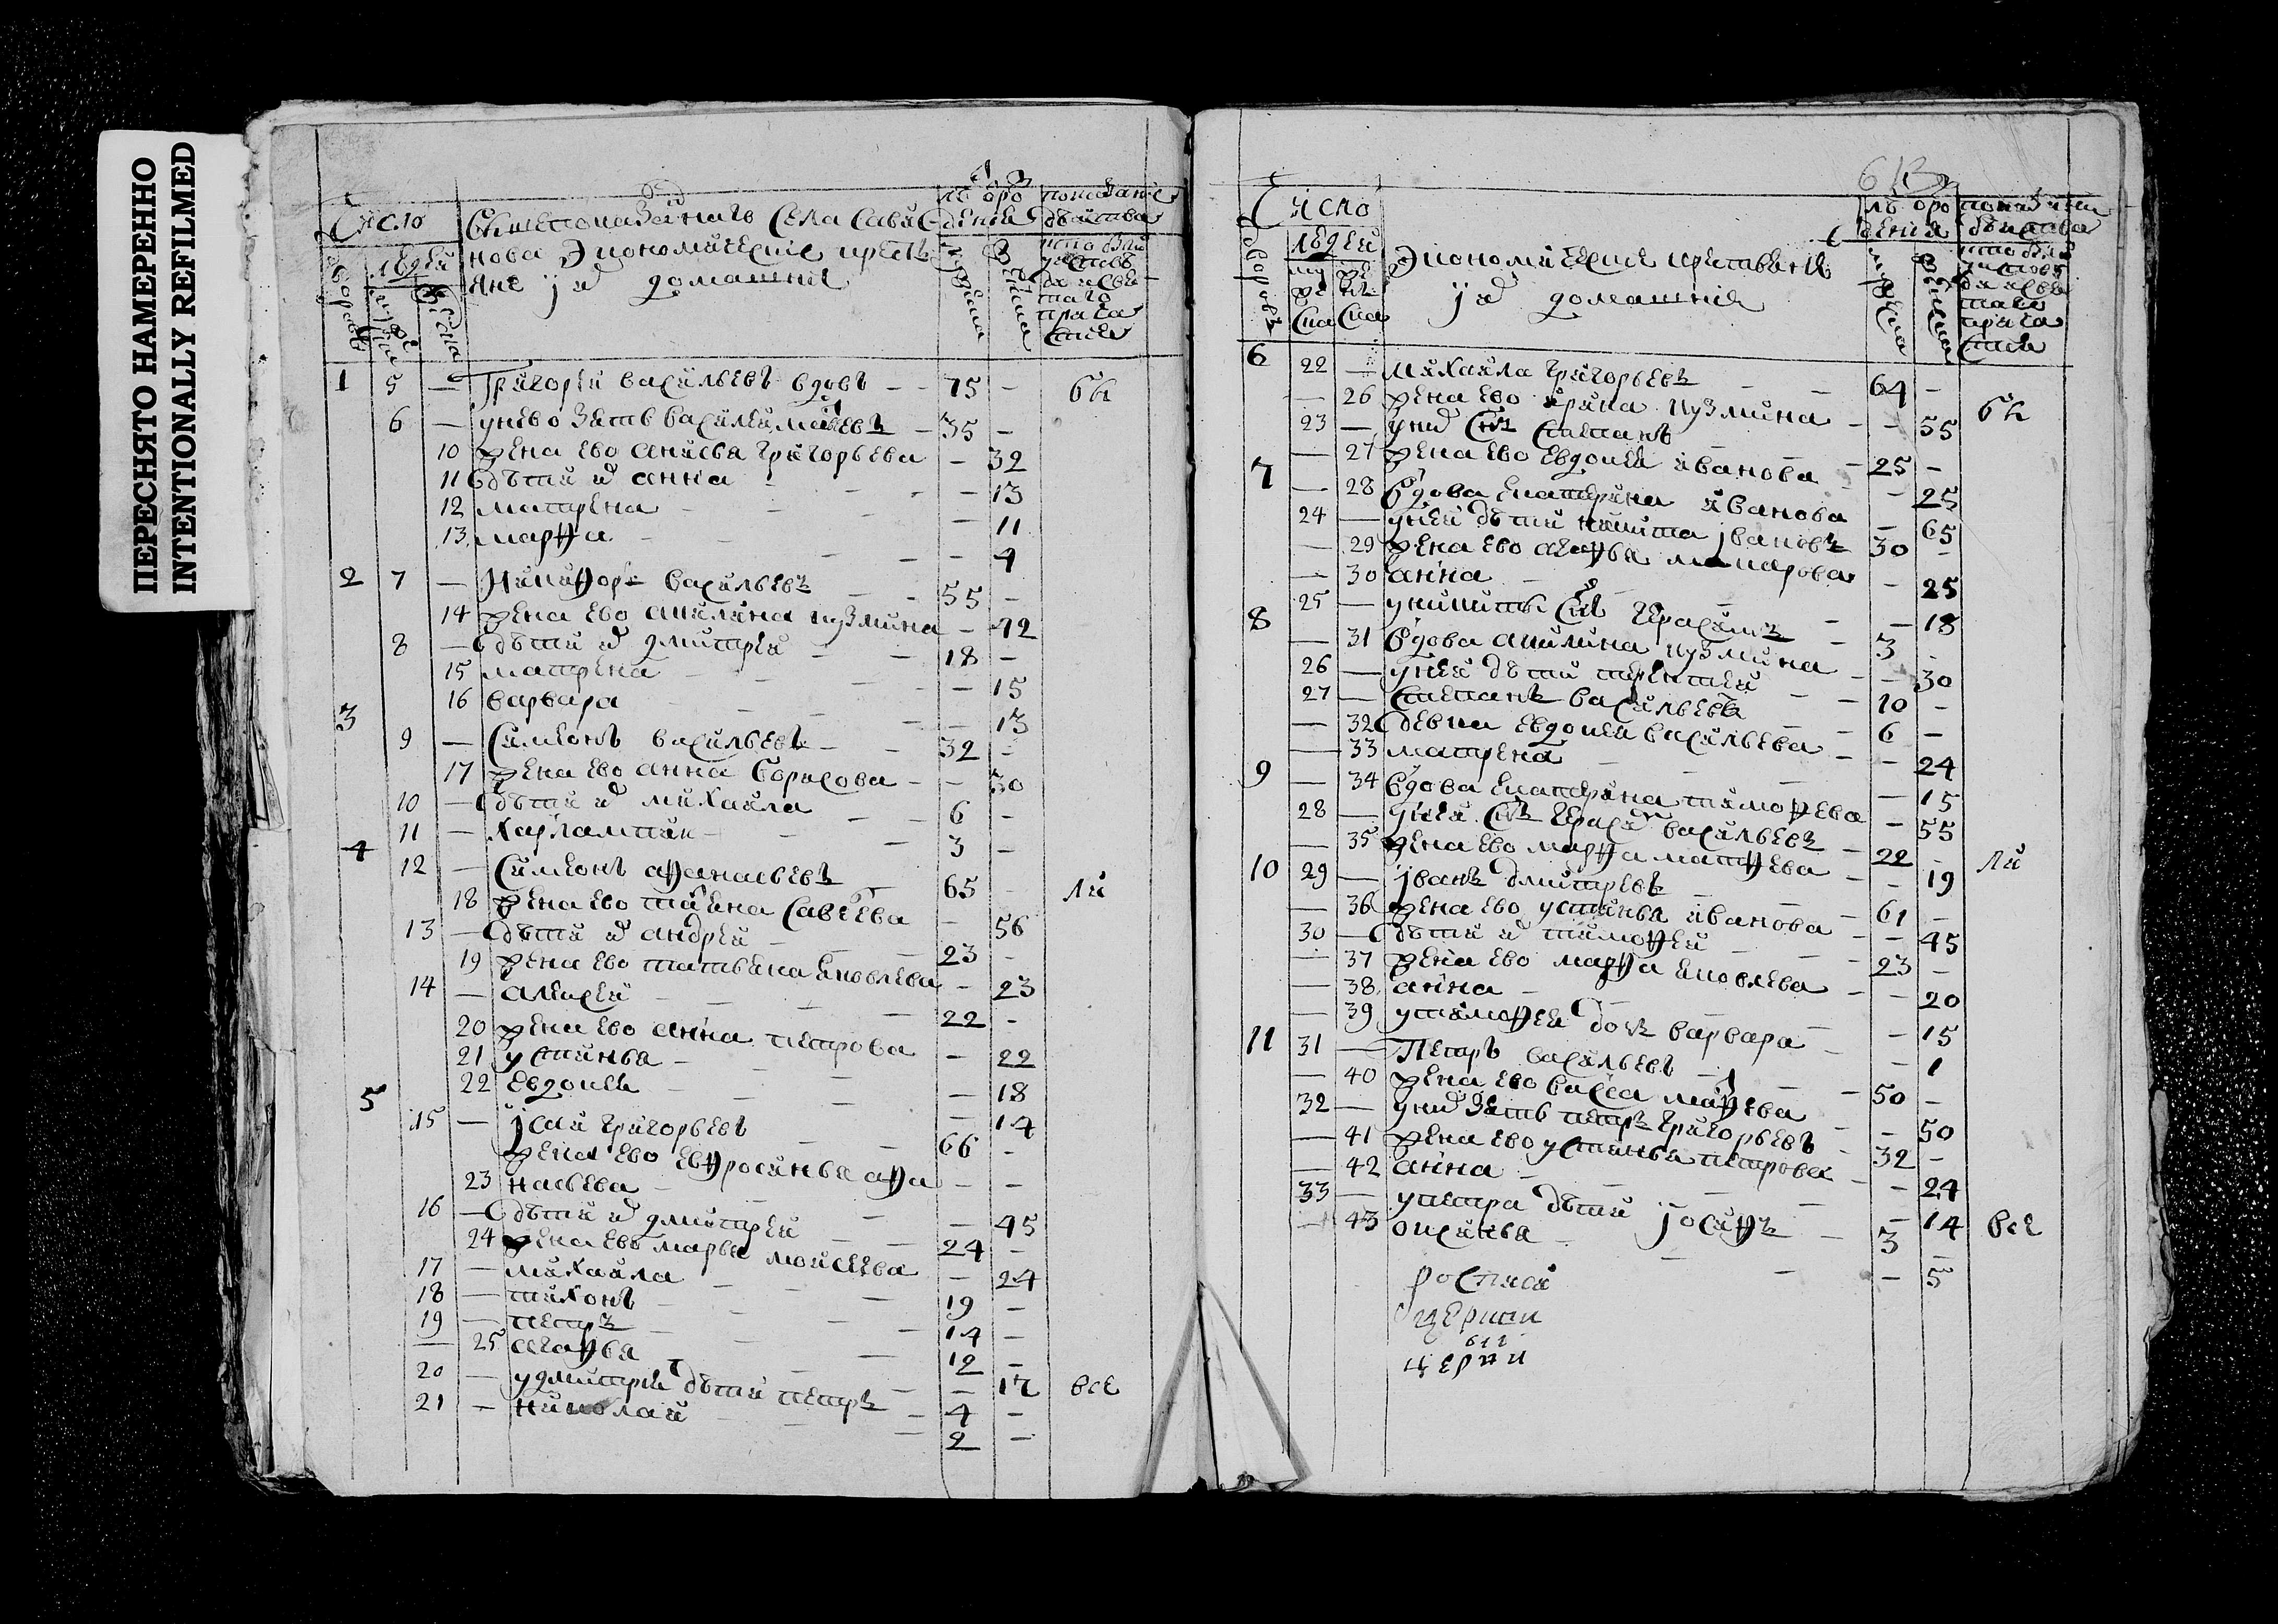 ПЕРЕСНЯТО НАМЕРЕННО
INTENTIONALLY REFILMED
Число
людей
дворовъ
мужеска
женска
Вышепоказаннаго Села Савино
нова Экономические кресть
яне и ихъ домашние
лѣтъ от рож
дения
мужеска
женска
показание
действа
кто был
у исповѣ
ди и свя
таго
прича
стия
1 5 — Григорей васильевъ вдовъ — 75 — бы
6 — у нево зять василей матфеевъ — 35 —
10 жена ево анисья григорьева — 32
11 дѣти ихъ анна — — 13
12 матрена — — 11
13 марфа — — 9
2 7 — Никифоръ васильевъ — 55 —
14 жена ево акилина кузмина — 42
8 — дѣти ихъ дмитрей — 18 —
15 матрена — — 15
16 варвара — — 13
3 9 — Симеонъ васильевъ — 32 —
17 жена ево анна борисова — — 30
10 — дѣти ихъ михаила — 6 —
11 — Харлампий — 3 —
4 12 — Симеонъ афанасьевъ — 65 — ли
18 жена ево татиена савеева — 56
13 — дѣти ихъ андрей — 23 —
19 жена ево татьяна яковлева — 23
14 — алексей — 22 —
20 жена ево анна петрова — 22
21 устинья — — 18
22 евдокея — — 14
5 15 — јсай григорьевъ — 66 —
жена ево евфросинья афа — —
23 насьева — — 45
16 — дѣти ихъ дмитрей — 24 —
24 жена ево марья мойсеева — 24
17 — михайла — 19 —
18 — тихонъ — 14 —
19 — петръ — 12 —
— 25 агафья — — 17 все
20 — у дмитрия дѣти петръ — 4 —
21 — николай — 2 —
613
Число
людей
дворовъ
мужеска
женска
Экономические крестьяне
и ихъ домашние
лѣтъ от рож
дения
мужеска
женска
показание
действа
кто был
у исповѣ
ди и свя
таго
прича
стия
6 22 — михаила григорьевъ — 64 — бы
— 26 жена ево ирина кузмина — — 55
23 — у них сынъ степанъ — 25 —
— 27 жена ево евдокея иванова — — 25
7 — 28 вдова екатерина иванова — 65
24 — у нея дѣти никита јвановъ 30 —
— 29 жена ево агафья макарова — 25
— 30 анна — — 18
25 — у никиты сынъ герасимъ — 3 —
8 — 31 вдова акилина кузмина — — 30
26 — у нея дѣти терентей — 10 —
27 — степанъ васильевъ — 6 —
— 32 девка евдокея васильева — — 24
— 33 матрена — — 15
9 — 34 вдова екатерина тимофеева — 55
28 — у нея сынъ герасим васильевъ — 22 — ли
— 35 жена ево марфа матфеева — — 19
10 29 — јванъ дмитревъ — 61 —
— 36 жена ево устинья иванова — — 45
30 — дѣти ихъ тимофей — 23 —
— 37 жена ево марфа яковлева — — 20
— 38 анна — — 15
— 39 у тимофея дочь варвара — — 1
11 31 — Петръ васильевъ — 50 —
— 40 жена ево васса матфеева — — 50
32 — у них зять петръ григорьевъ — 32 —
— 41 жена ево устинья петрова — — 24
— 42 анна — — 14 все
33 — у петра дѣти јосифъ — 3 —
— 43 оксинья — — 5
росписи
церкви
611
церкви